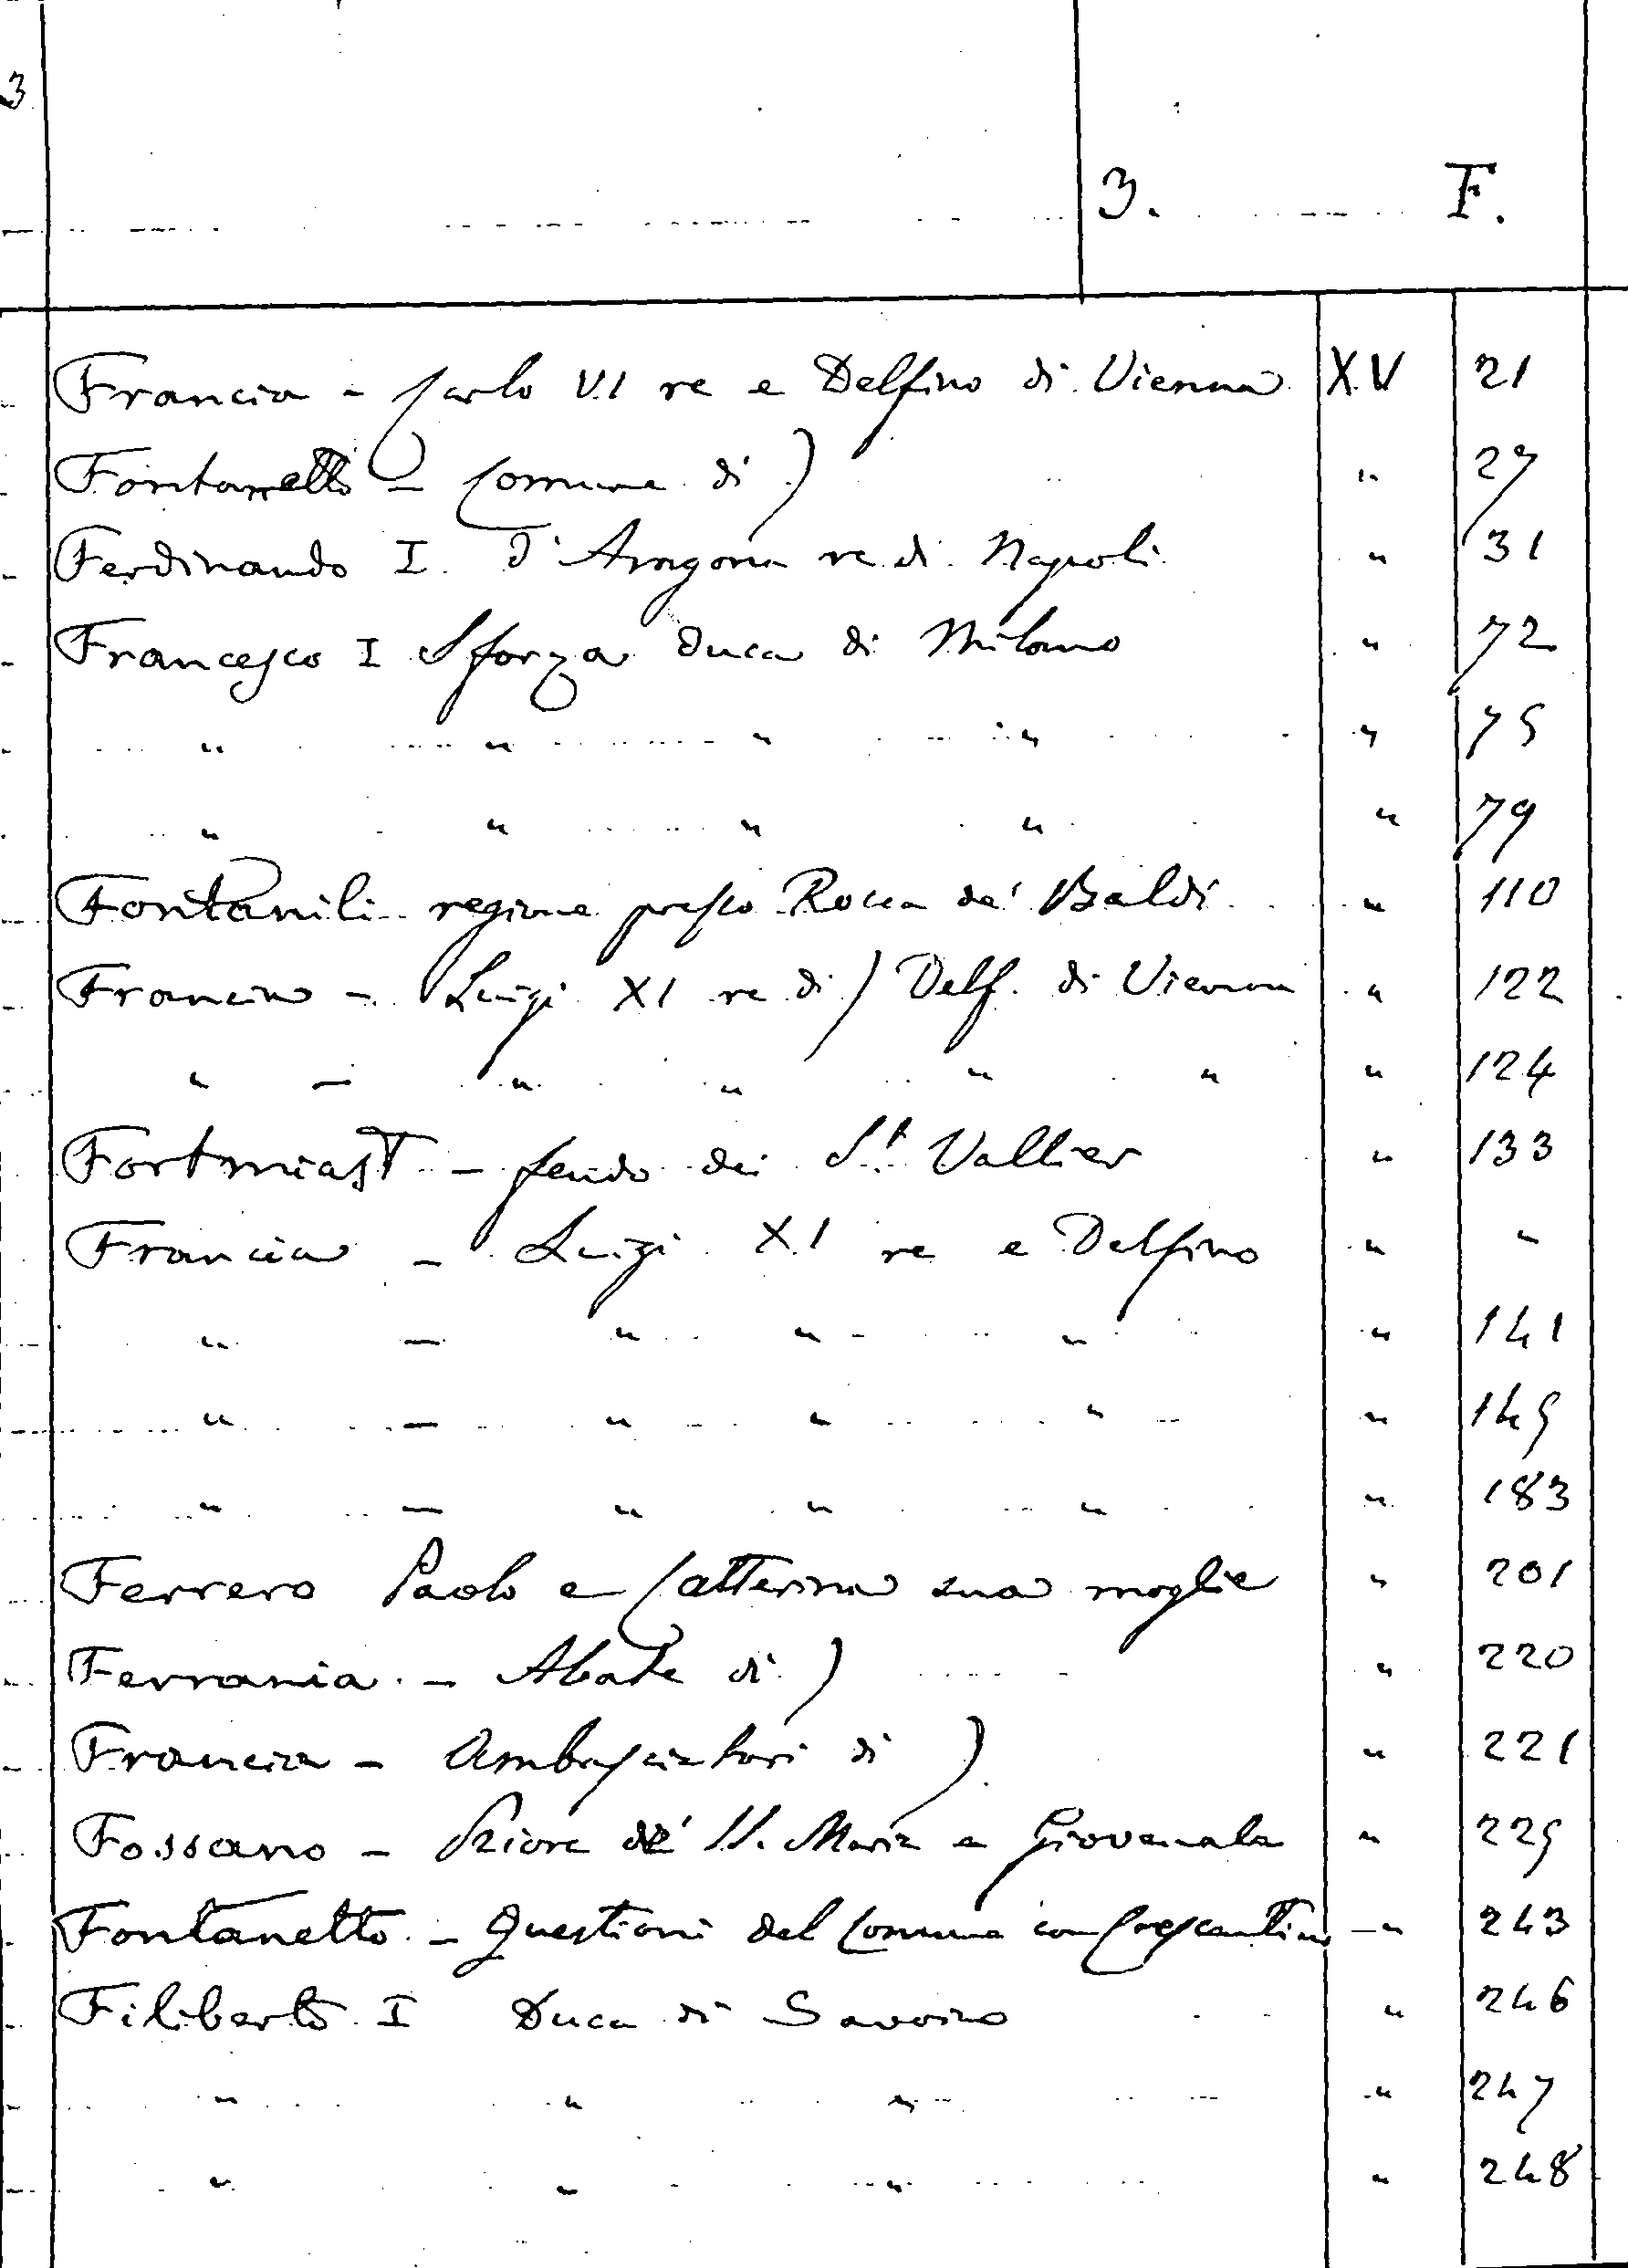 3
3. F.
Francia - Carlo VI re e Delfino di Vienna XV 21
Fontanetto - Comune di) " 27
Ferdinando I d'Aragona re di Napoli " 31
Francesco I Sforza Duca di Milano " 72
" " " " " 75
" " " " " 79
Fontanili regione presso Rocca de' Baldi " 110
Francia - Luigi XI re di) Delf. di Vienna " 122
" - " " " " " 124
Fortmiast - feudo dei St Vallier " 133
Francia - Luigi XI re e Delfino " "
" - " " " " 141
" - " " " " 145
" - " " " " 183
Ferrero Paolo e Catterina sua moglie " 201
Ferrania - Abate di) " 220
Francia - Ambasciatori di) " 221
Fossano - Priore de' SS. Maria e Giovenale " 225
Fontanetto - Questioni del Comune con Crescentino " 243
Filiberto I Duca di Savoia " 246
" " " " 247
" " " " 248